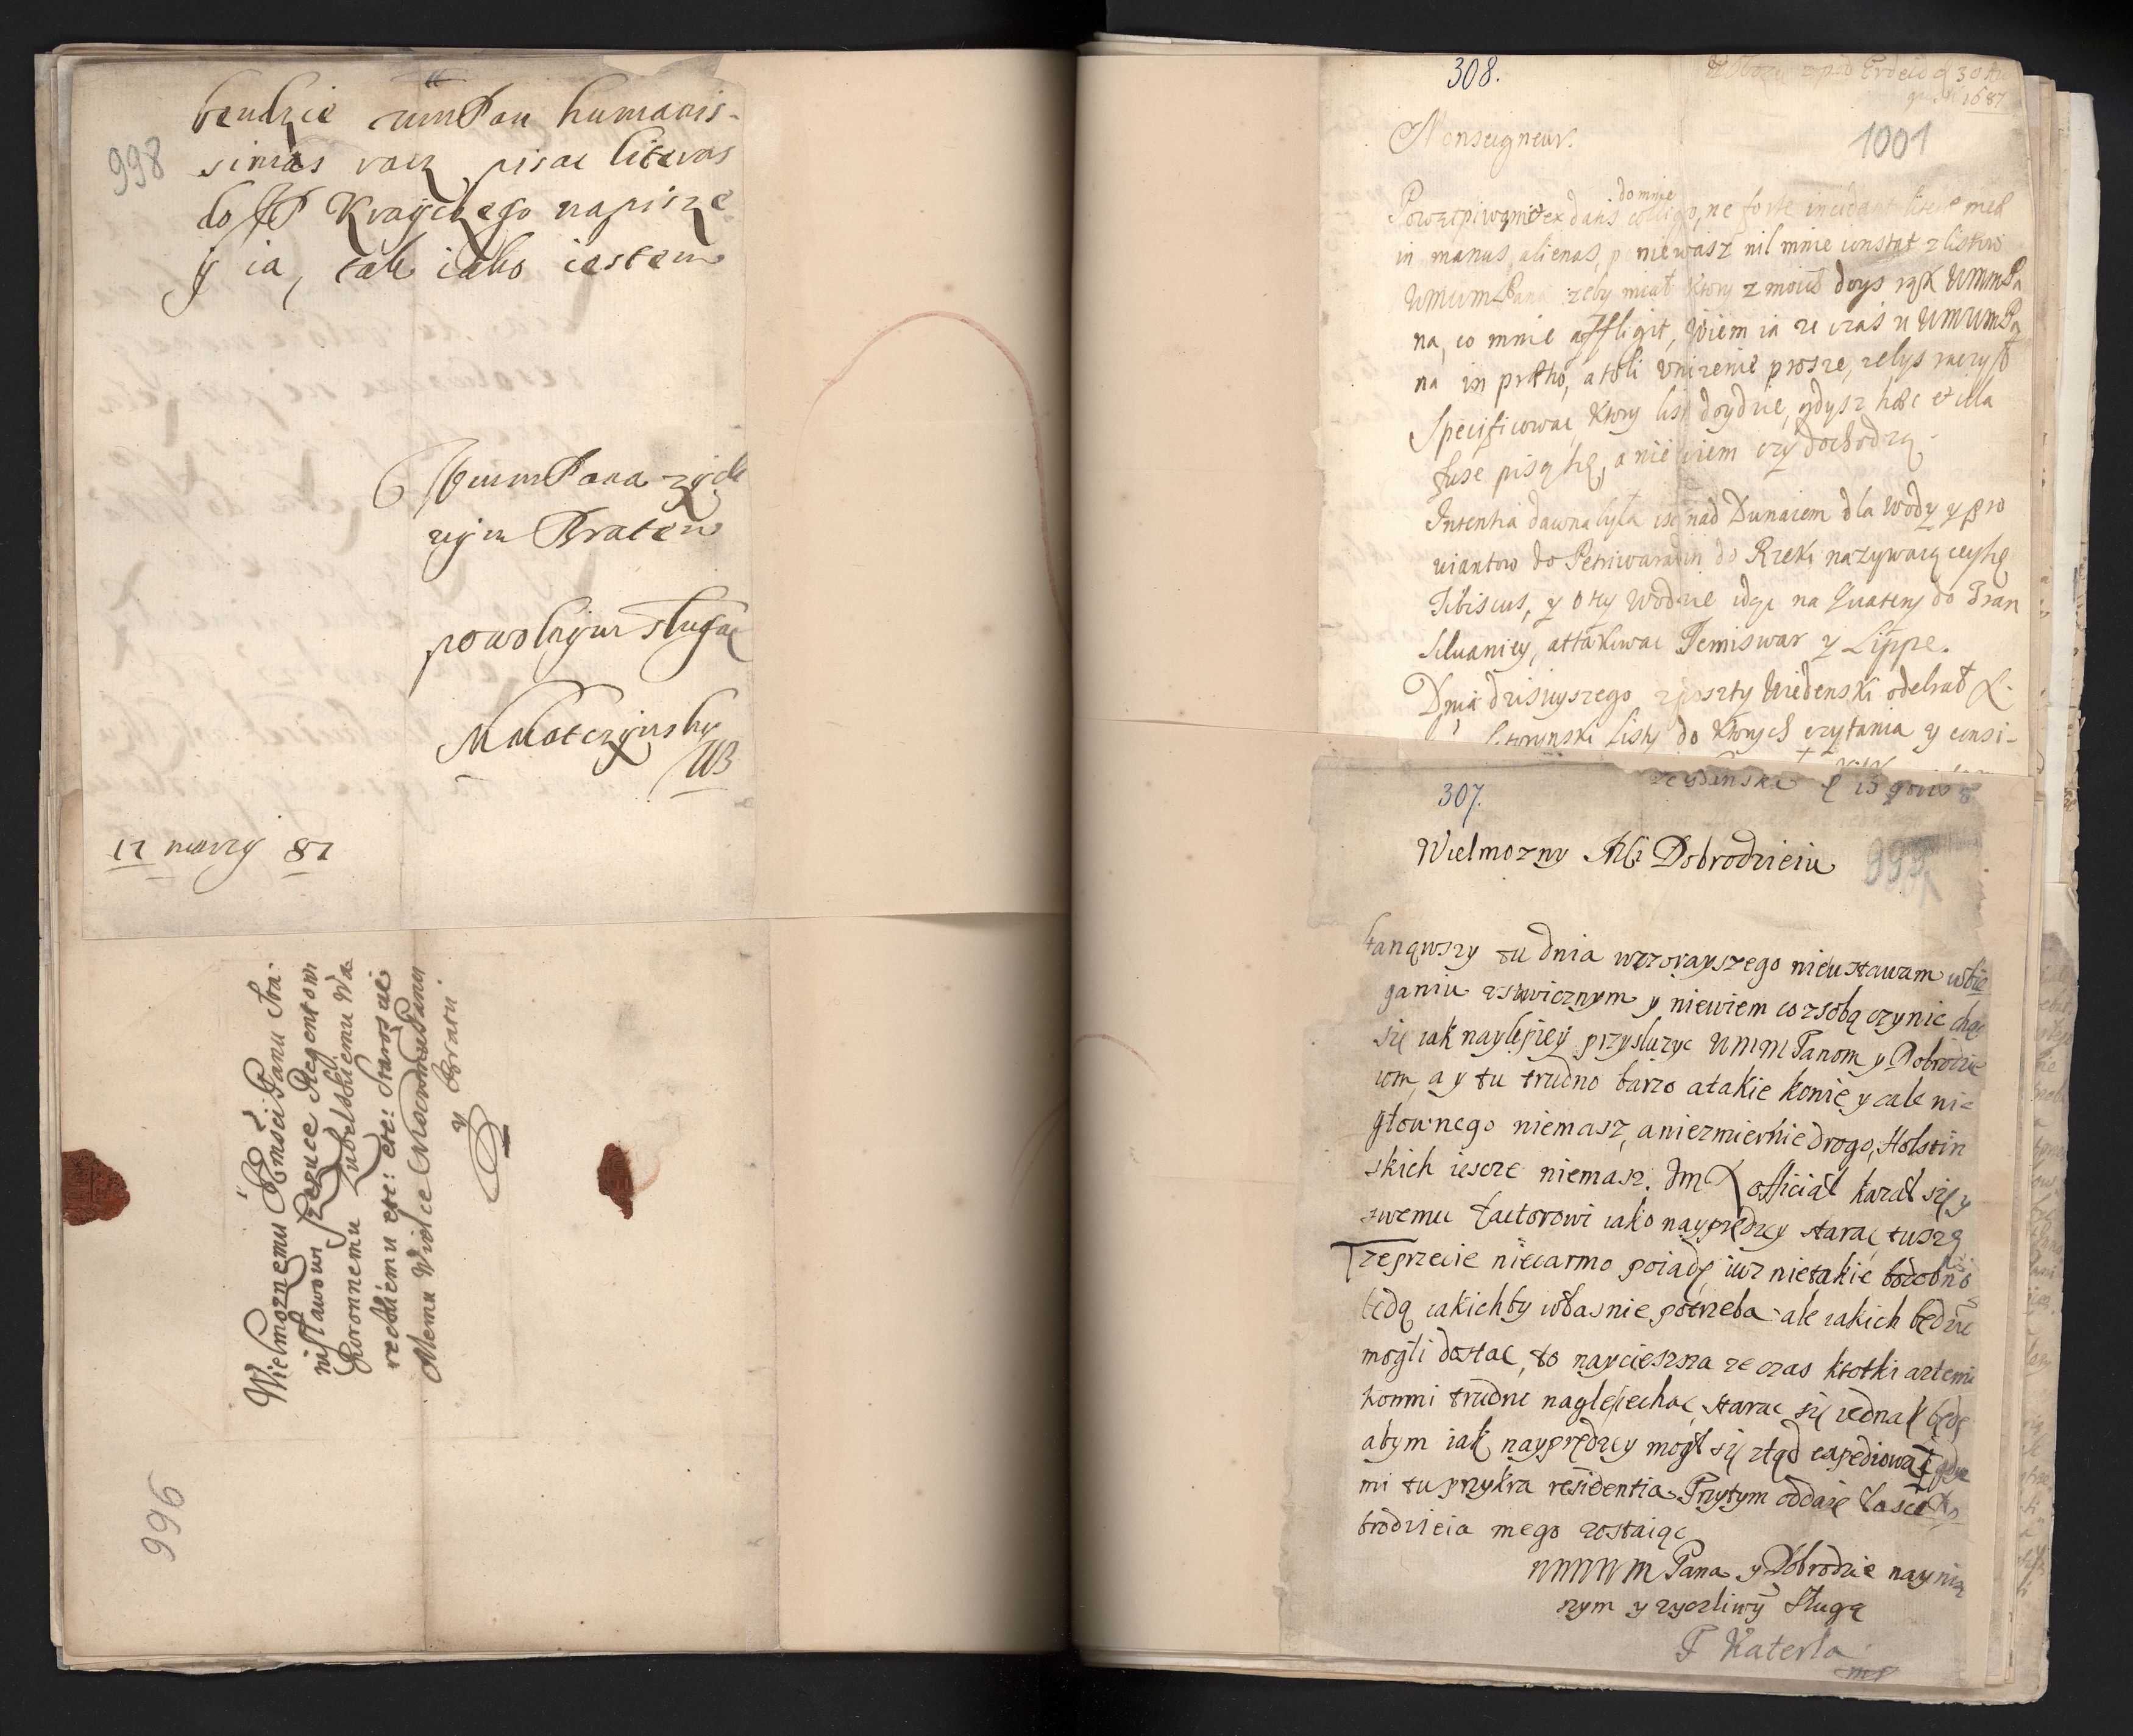 998
bendzie WmPan humanis-
simas racz pisac literas
do JP Krayczego napisze
y ia, tak iako iestem
WmmPana zycz
nym Bratem
powolnym sługą
MMatczynsky
WB
17 marzy 87
Wielmoznemu Jmsci Panu Sta-
nisławowi Szczuce Regentowi
Koronnemu Lubelskiemu Wa
reckiemu etc: etc: Staroscie
Memu Wielce Mosciwemu Panu
y Bratu
996
308.
30
1687
1001
Monseigneur.
do mnie
ex datis colligo, ne forte incidant literae meae
in manus alienas, poniewasz nil mnie constat z listow
UMumPana zeby miał ktory z moich doys rąk UMmPa
na, co mnie affligit, Wiem ia ze czas u UMUmPa
na in pretio, atoli unizenie prosze, zebys raczył
Specificowac ktory list doydzie, gdysz haec et illa
fuse piszę, a nie wiem czy dochodzą.
Intentia dawna była isc nad Dunaiem dla wody y pro
viantow do Petriwaradin do Rzeki nazywaiącey się
Tibiscus, y o tey wodzie idąc na Kwatery do Tran
siluaniey, attakowac Temiswar y Lippe.
Dnia dzisieyszego z poszty Wiedenski odebrał X.
Lotarinski listy do ktorych czytania y consi-
307.
ze Gdanska d 15
Wielmozny Mści Dobrodzieiu
999
stanąwszy tu dnia wczorayszego nieustawam w bie
ganiu ustawicznym y niewiem co z sobą czynic chcąc
się iak naylepiey przysluzyc UMM Panom y Dobrodzie
iom, a y tu trudno barzo a takie konie y cale nic
głownego niemasz, a niezmiernie drogo, Holstin
skich iescze niemasz. Jm X official kazał się y
swemu factorowi iako nayprędzey starac, tuszę
ze przecie nie darmo poiadę, iuz nie takie
będą iakichby własnie potrzeba ale iakich będzie
mogli dostac, to naycięszsza ze czas krotki a z temi
konmi trudno nagle iechac, starac się iednak będę
abym iak nayprędzey mogł się ztąd expediowac gdyz
mi tu przykra residentia. Przytym oddaię łasce Do
brodzieia mego zostaiąc
WMMM Pana y Dobrodzie nayniz
szym y zyczliwy Sługą
F Katerla
mp